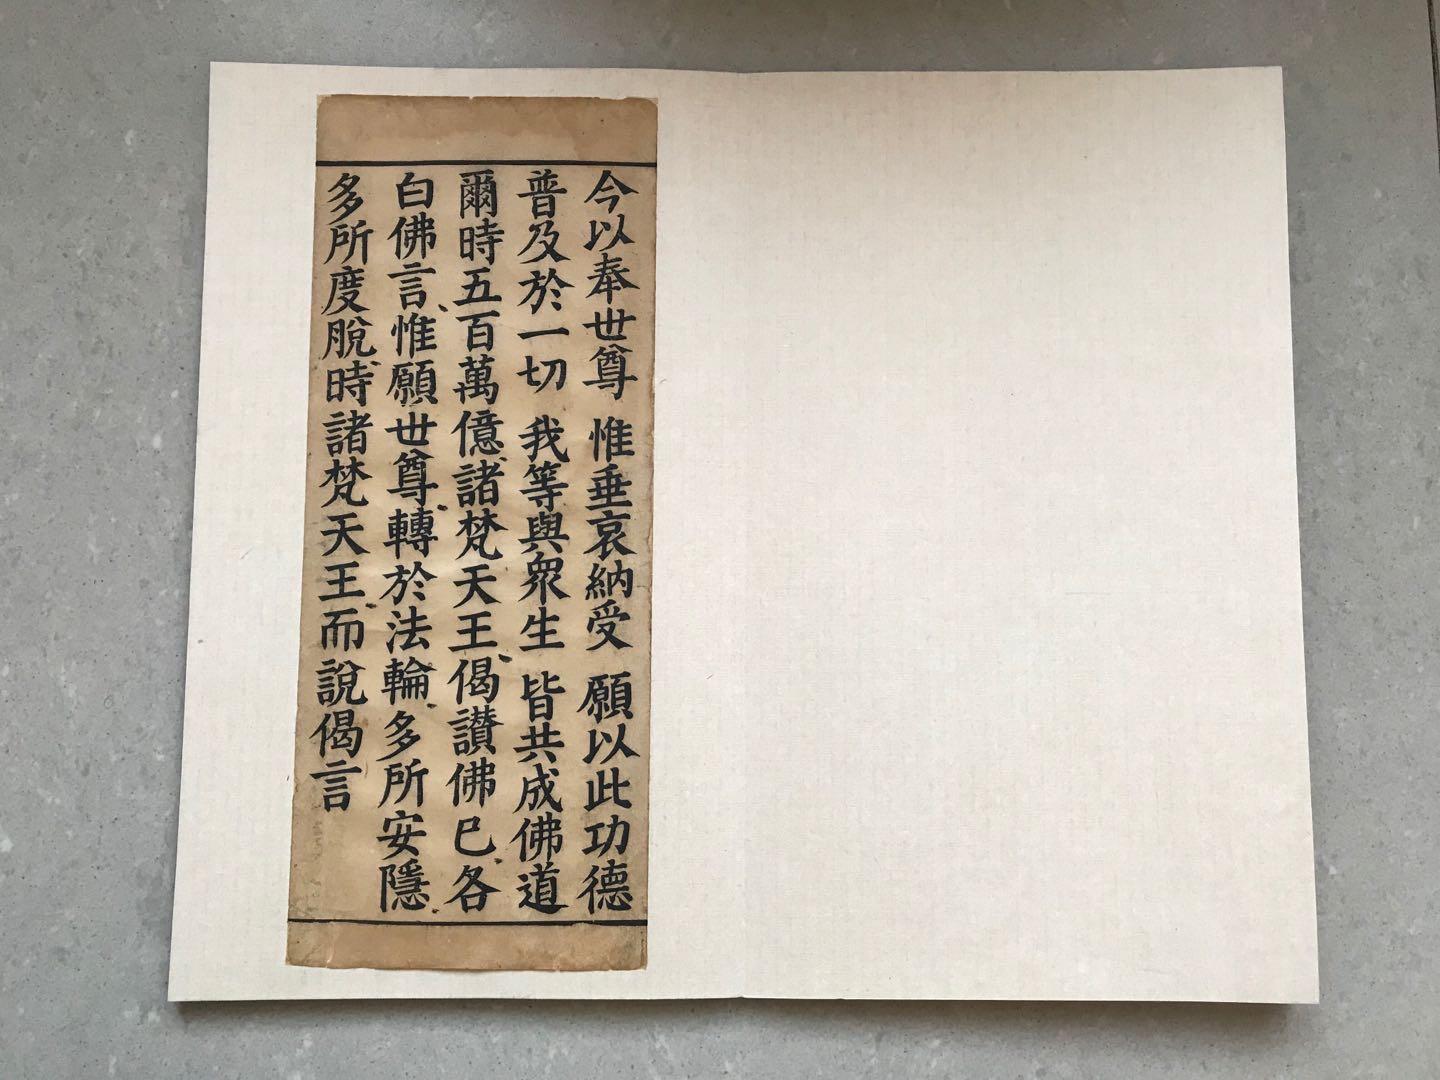 今以奉世尊 惟垂哀納受 願以此功德
普及於一切 我等與眾生 皆共成佛道
爾時五百萬億諸梵天王偈讃佛已各
白佛言、惟願世尊、轉於法輪、多所安隱、
多所度脫、時諸梵天王、而說偈言